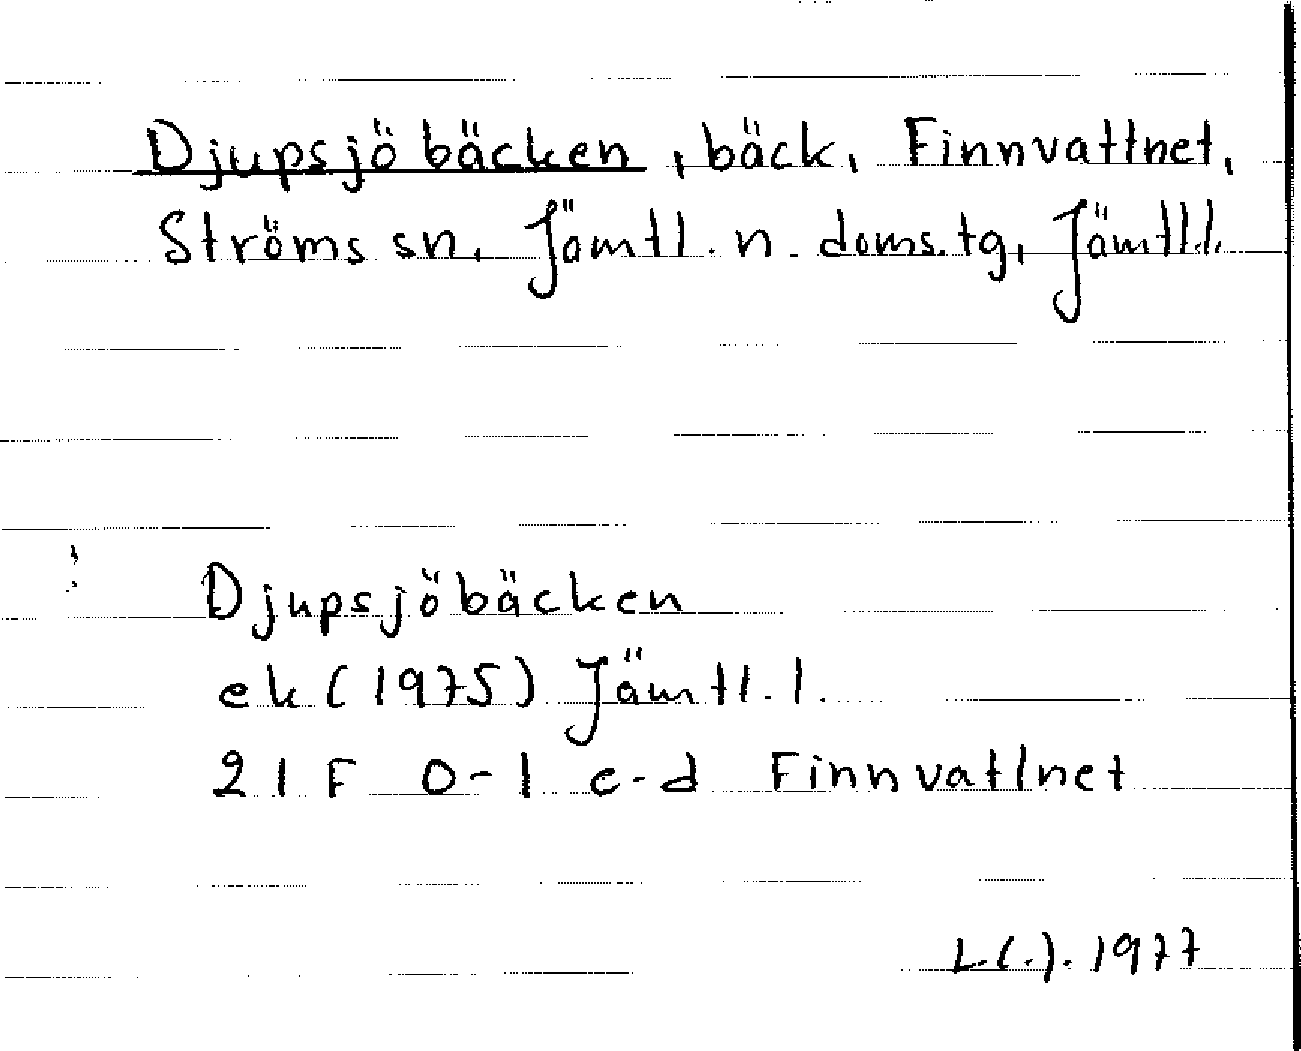 Djupsjöbäcken, bäck, Finnvattnet,
Ströms sn, Jämtl. n. doms.tg, Jämtl.l.
Djupsjöbäcken
ek (1975) Jämtl. l.
21 F 0-1 c-d Finnvattnet
1977